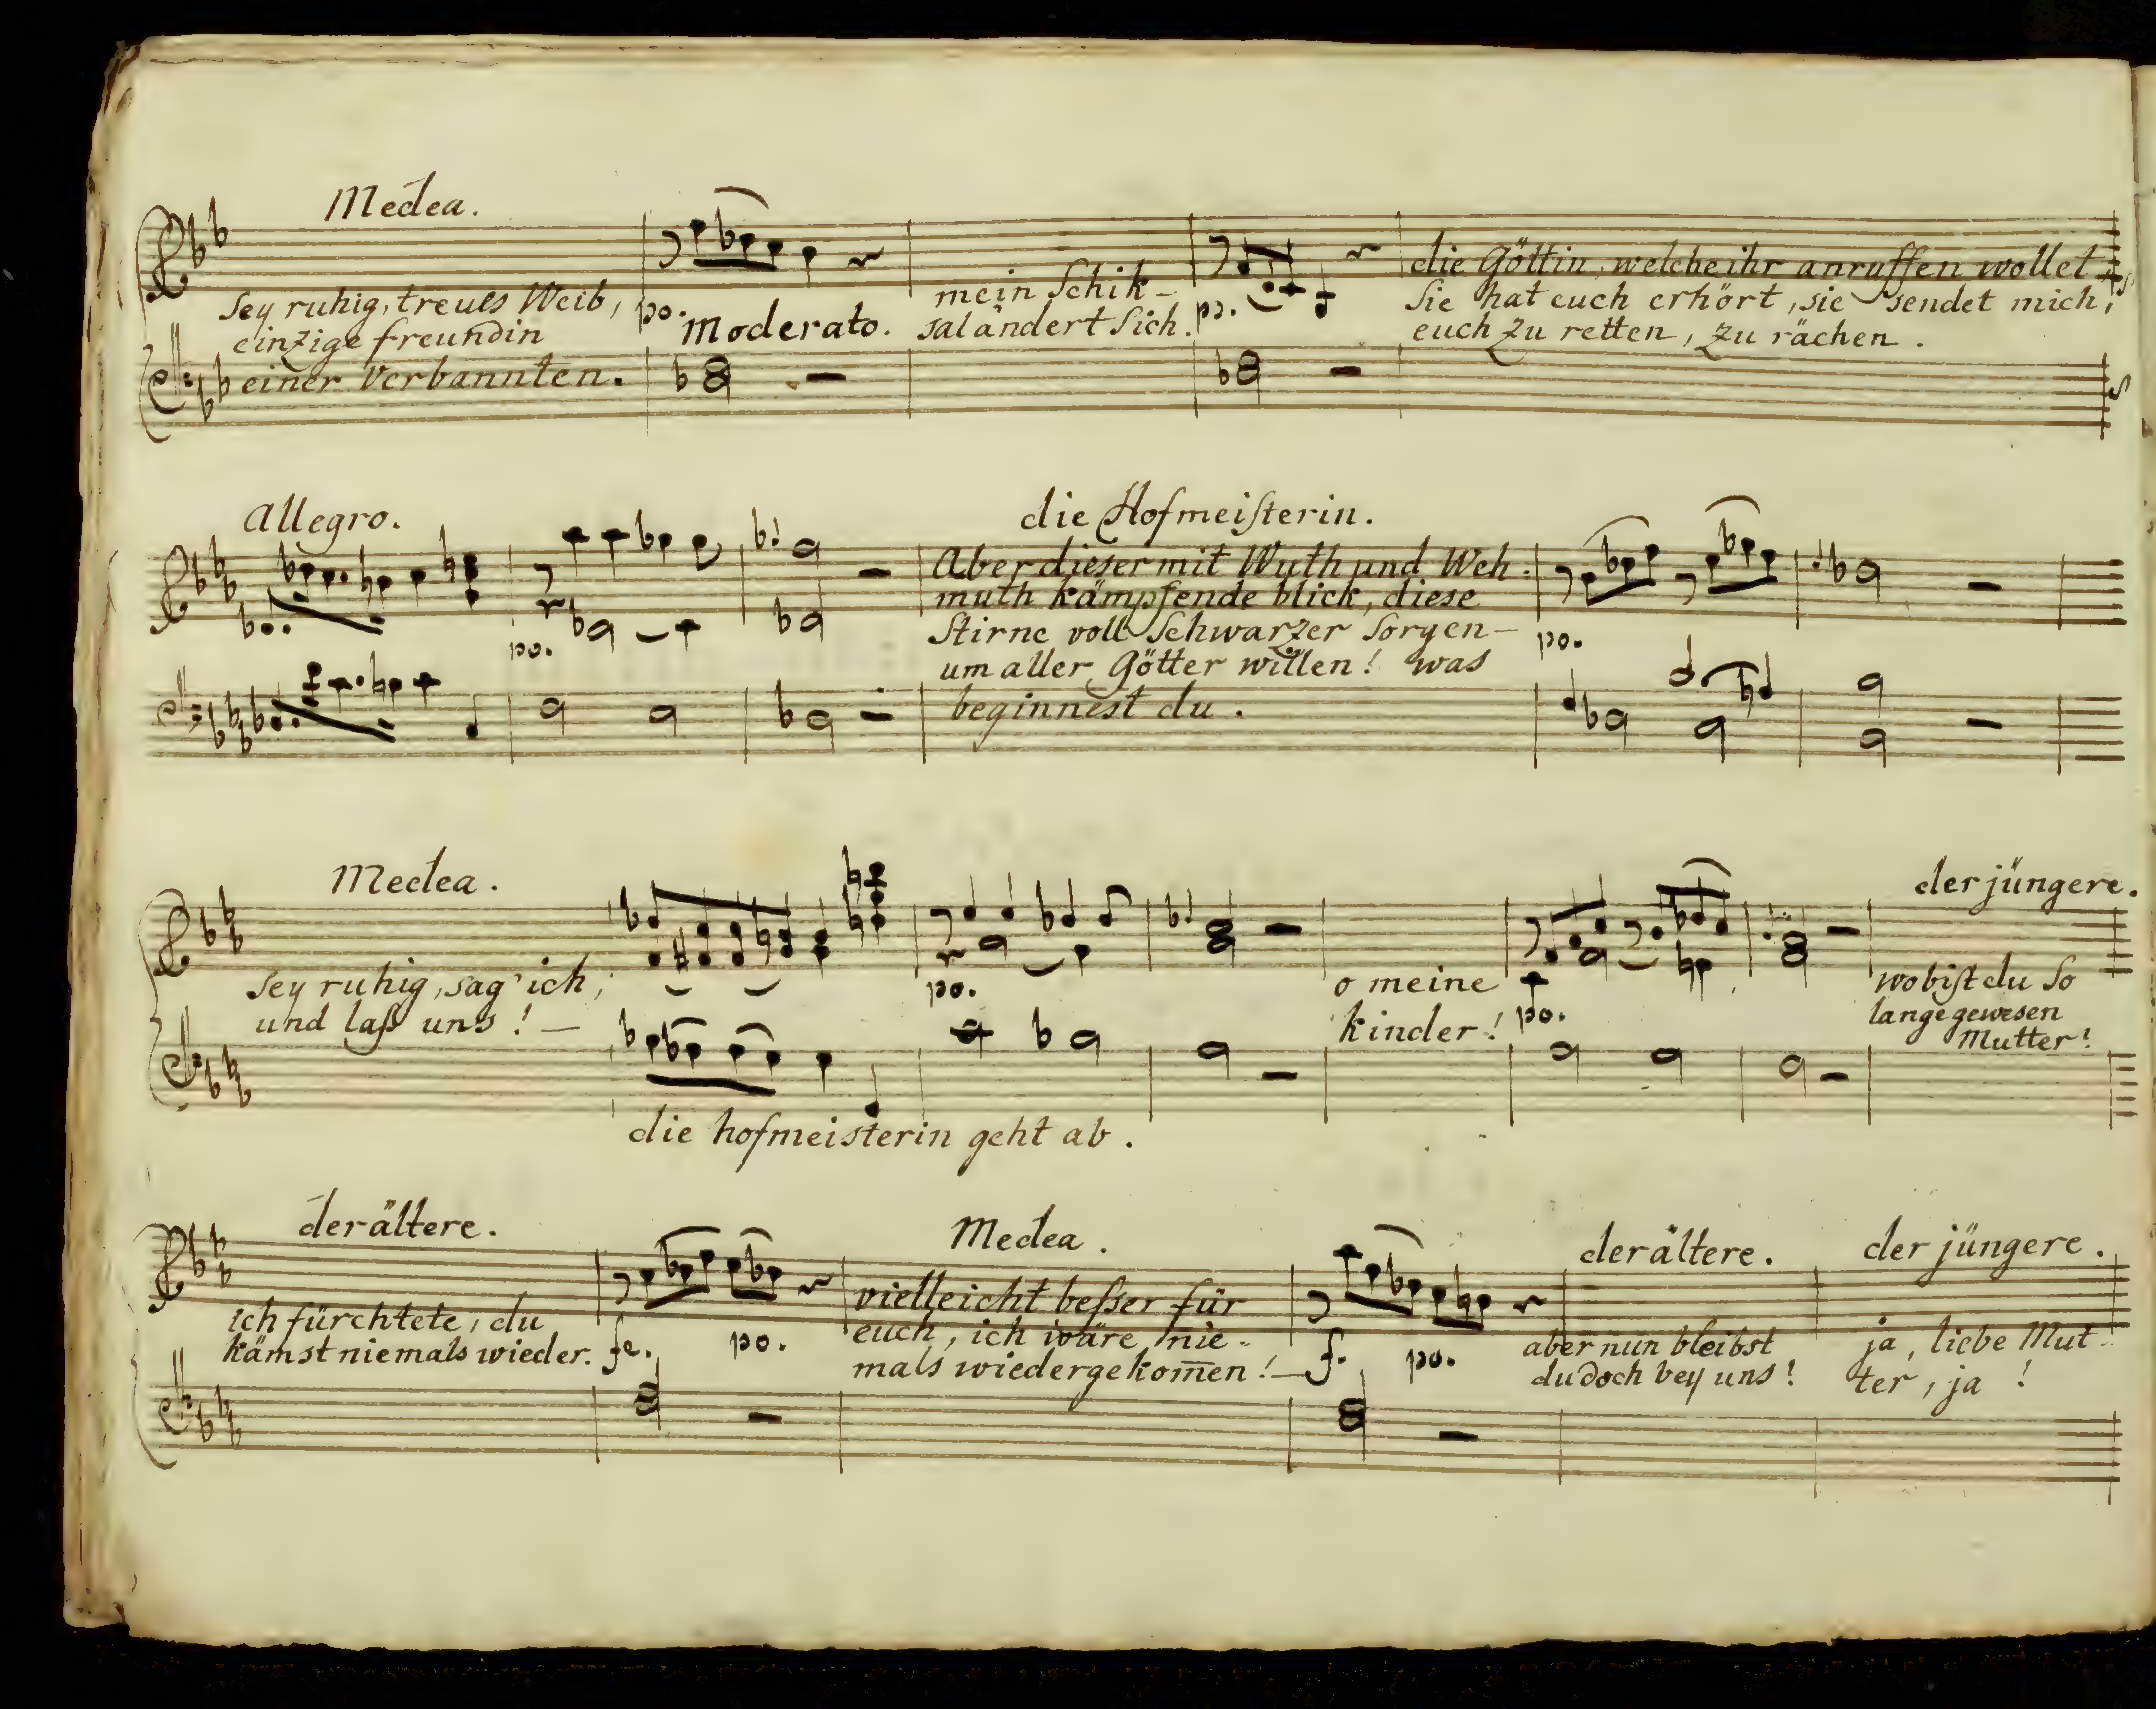 Medea.
Sey ruhig, treues Weib,
einzige freundin
einer Verbannten.
po. Moderato.
mein Schik-
sal ändert sich.
po.
die Göttin, welche ihr anruffen wollet,
Sie hat euch erhört, sie sendet mich,
euch zu retten, zu rächen.
Allegro.
po.
die Hofmeisterin.
Aber dieser mit Wuth und Weh-
muth kämpfende blick, diese
Stirne voll Schwarzer Sorgen-
um aller Götter willen! was
beginnest du.
po.
Medea.
Sey ruhig, sag' ich,
und laß uns! —
die hofmeisterin geht ab.
po.
o meine
kinder!
po.
der jüngere.
wo bist du So
lange gewesen
Mutter?
der ältere.
ich fürchtete, du
kämst niemals wieder.
fe. po.
Medea.
vielleicht besser für
euch, ich wäre nie-
mals wiedergekom̄en! —
f. po.
der ältere.
aber nun bleibst
du doch bey uns!
der jüngere.
ja, liebe Mut-
ter, ja!